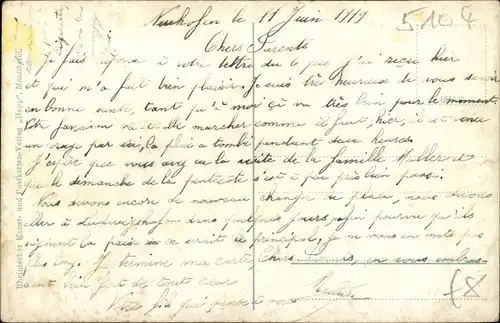 Neuhofen le 11 Juin 1919
5.10€
Chers Parents
Je fais réponse à votre lettre du 6 que j'ai reçu hier
et qui m'a fait bien plaisir. Je suis très heureuse de vous savoir
en bonne santé, tant qu'à moi ça va très bien pour le moment.
Votre jardin va-t-elle marcher comme il faut, hier, il est venu
un orage par ici, la pluie a tombé pendant deux heures
J'espère que vous avez eu la visite de la famille Muller et
que le dimanche de la pentecôte s'est à peu près bien passé.
Nous devons encore de nouveau changer de place, nous devons
aller à Ludwigshafen dans quelques jours, enfin pourvu qu'ils
signent la paix se serait le principal, je ne vous en mets pas
plus long. Je termine ma carte, Chers Parents, en vous embras-
sant bien fort de tout cœur
Votre fils qui pense à vous
£8
Rheinischer Kunst- und Postkarten-Verlag „Hepp", Mannheim